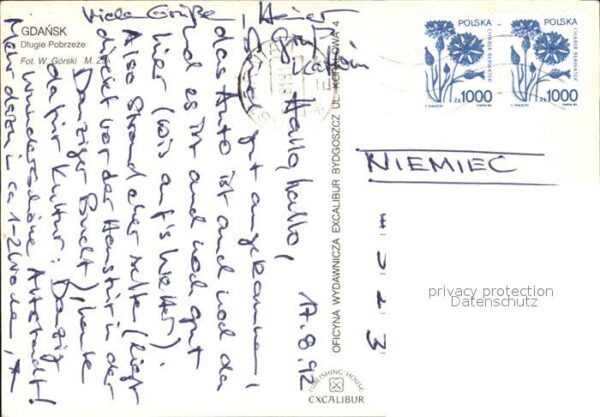 GDAŃSK
Długie Pobrzeże
Fot. W. Górski M. Żak
17.8.92
Hallo, hallo,
Sind gut angekommen,
das Auto ist auch noch da
und es ist auch noch gut
hier (bis auf's Wetter).
Also Strand eher selten (liegt
direkt vor der Haustür in der
Danziger Bucht), heute
dafür Kultur: Danzig
wunderschöne Altstadt!
Mehr davon in ca 1-2 Wochen,
Viele Grüße
OFICYNA WYDAWNICZA EXCALIBUR BYDGOSZCZ UL. 4
PUBLISHING HOUSE
EXCALIBUR
POLSKA
CHABER BŁAWATEK
zł 1000
POLSKA
CHABER BŁAWATEK
zł 1000
NIEMIEC
privacy protection
Datenschutz